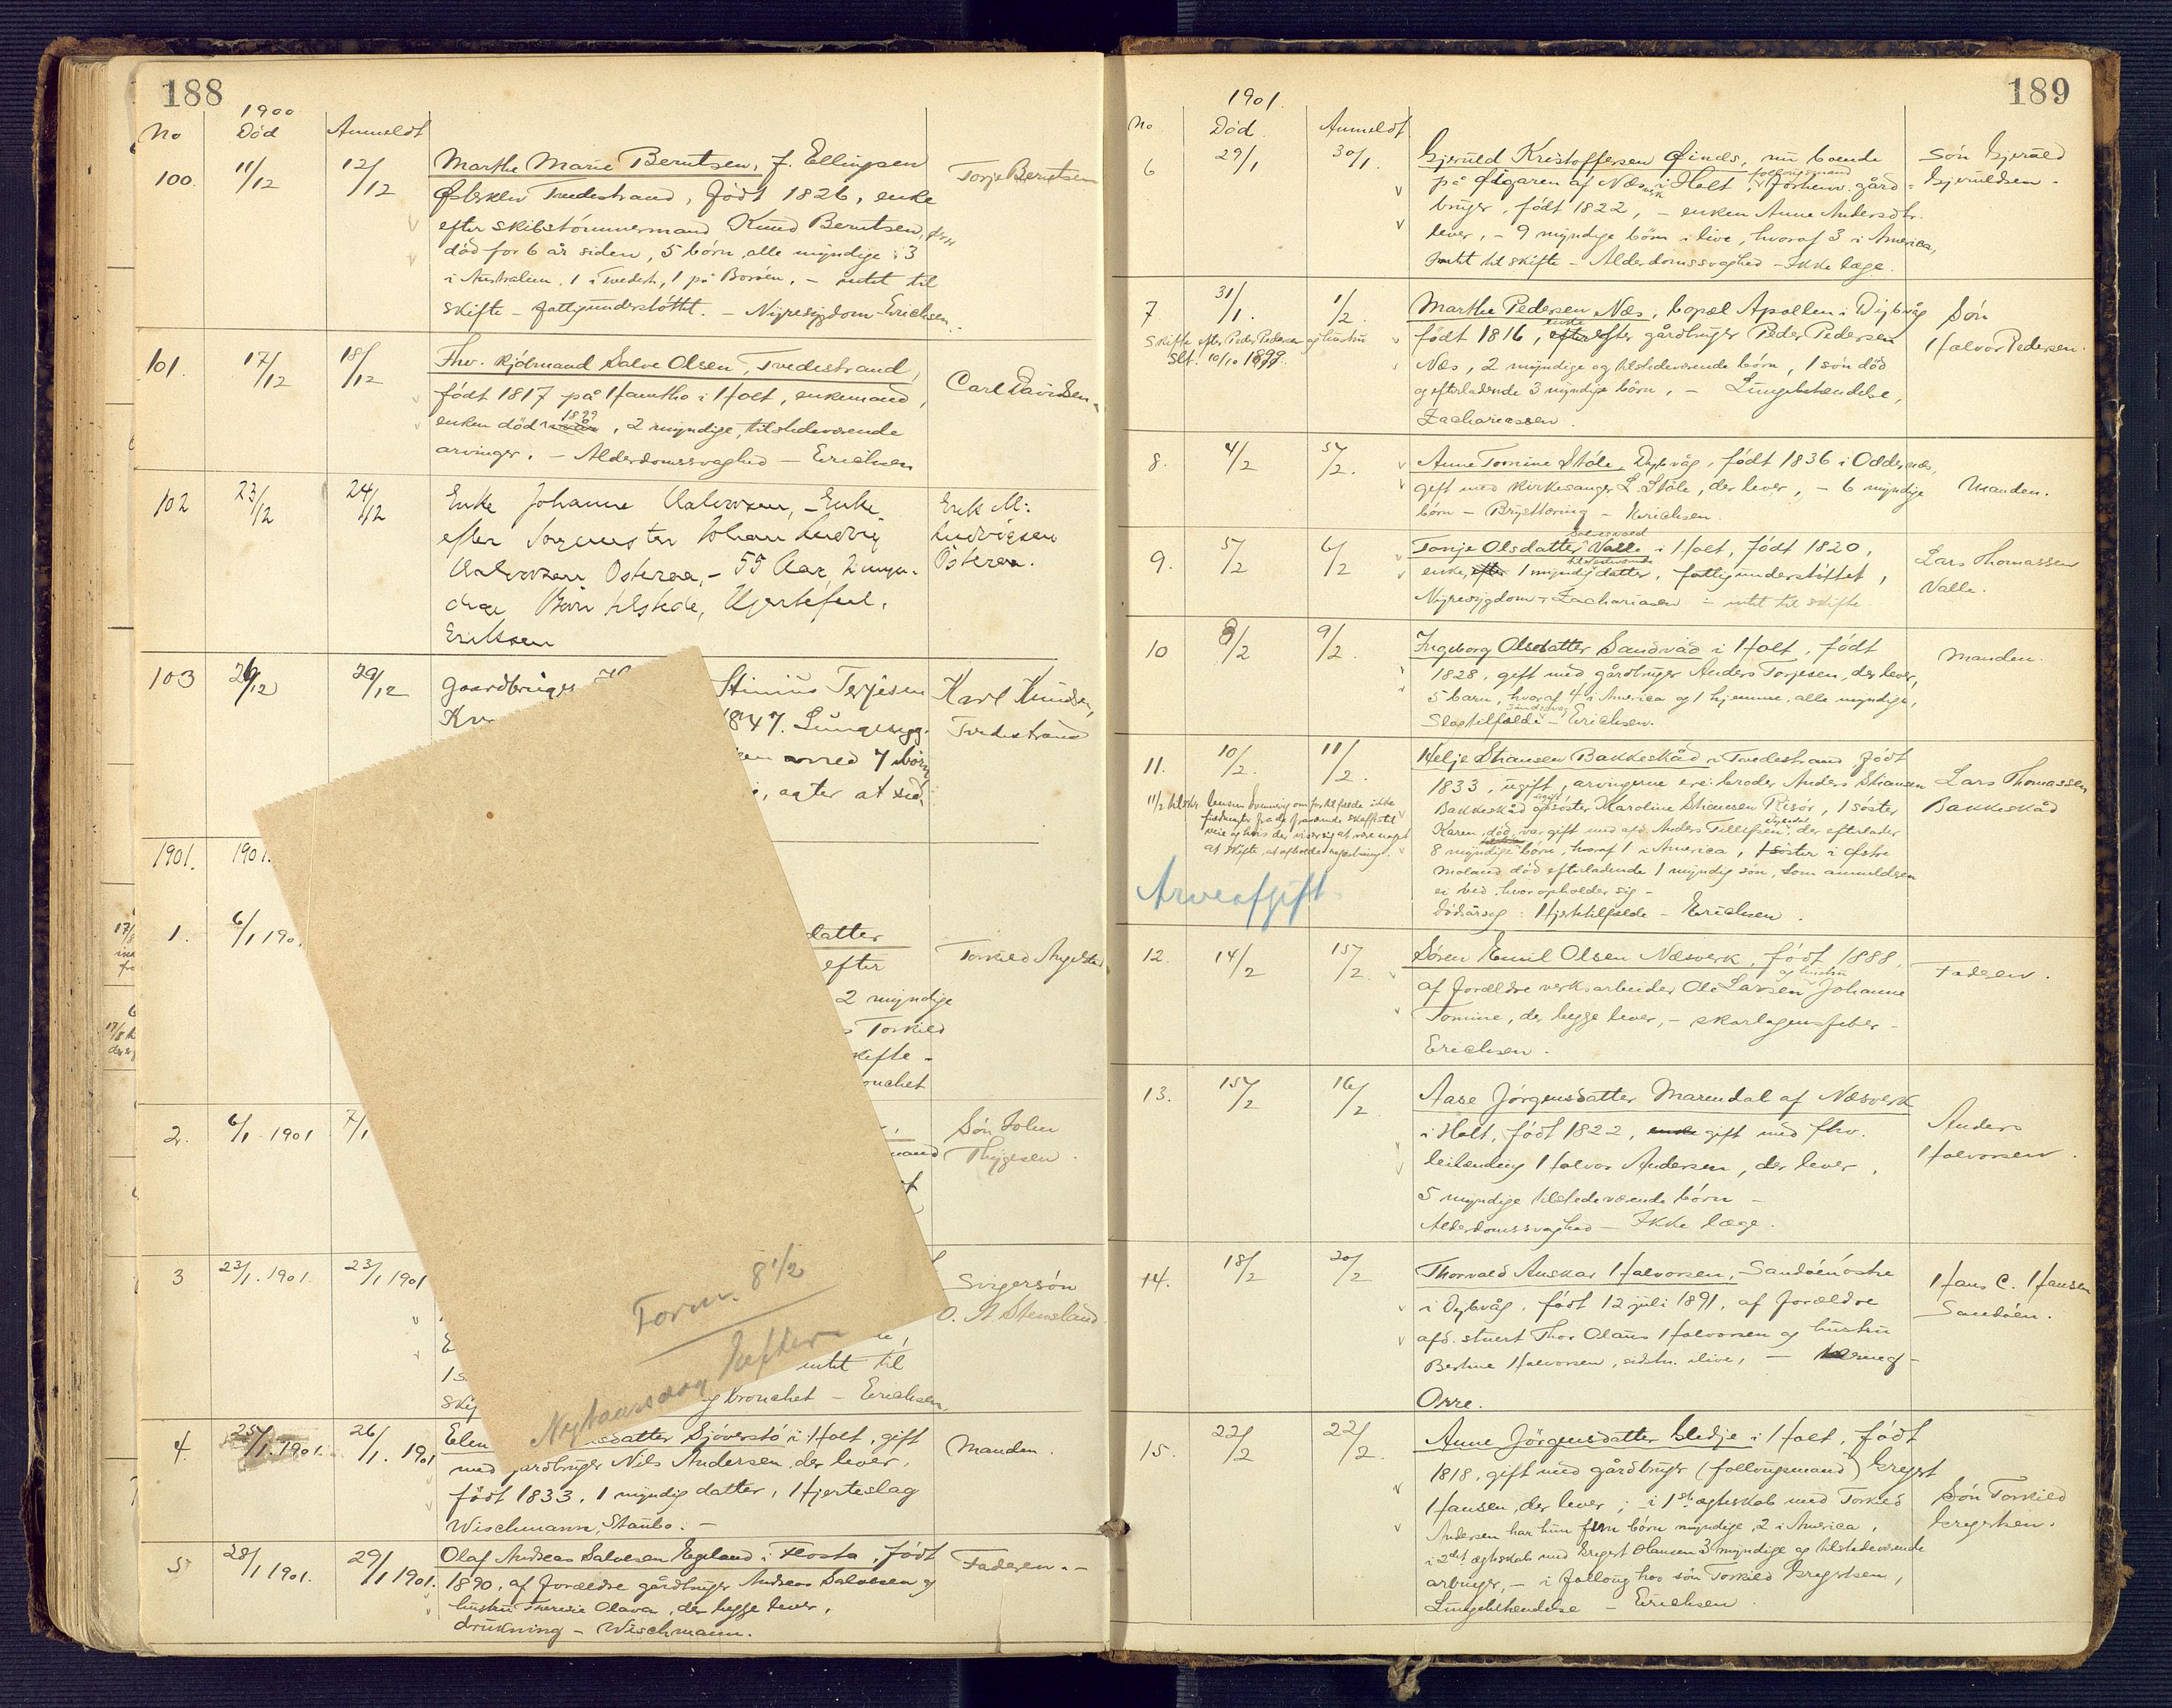 188
1900
No Død Anmeldt
100. 11/12 12/12 Marthe Marie Berntsen, f. Ellingsen
Østerklev Tvedestrand, født 1826, enke
efter skibstømmermand Knud Berntsen,
død for 6 år siden, 5 børn, alle myndige, 3
i Australien, 1 i Tvedestr, 1 på Borøen, – intet til
skifte – fattigunderstøttet. – Nyresygdom – Erichsen
Torje Berntsen
101. 17/12 18/12 Fhv. Salve Olsen, Tvedestrand,
født 1817 på Hantho i Holt, enkemand,
enken død 1899, 2 myndige, tilstedeværende
arvinger. – Alderdomssvaghed – Erichsen
Carl Davidsen
102 23/12 24/12 Enke Johanne Halvorsen, – Enke
efter Johan Ludvig
Halvorsen Østeraa, – 55 Aar, 2 myn-
dige Børn tilstede, Hjertefeil.
Eriksen
Erik M:
Ludvigsen
Østeraa.
103 26/12 29/12 Gaardbruger Stinius Terjesen
1847. Lungesygd.
med 7 børn
, agter at sid.
Karl Knudsen,
Tvedestrand
1901. 1901.
1. 6/1 190
datter
efter
2 myndige
Torkild
skifte –
bronchet
Torkild
2. 6/1 1901 7/1
mand
Søn John
Thygesen.
3 23/1. 1901. 23/1 1901
intet til
bronchet – Erichsen
Svigersøn
O. A Stensland.
Form. 8 1/2
Nytaarsdag Efter
4. 25/1. 1901. 26/1. 1901 Elen sdatter Sjøverstø i Holt, gift
med gårdbruger Nils Andersen, der lever,
født 1833. 1 myndig datter, Hjerteslag
Wischmann, Staubo. –
Manden.
5 28/1 1901. 29/1 1901. Olaf Andreas Salvesen Egeland i Flosta, født
1890, af forældre gårdbruger Andreas Salvesen og
hustru Therese Olava, der begge lever,
drukning – Wischmann.
Faderen. –
189
1901.
No Død. Anmeldt
6 29/1 30/1. Gjeruld Kristoffersen Øinds, nu boende
på Ødgaren af Næsverk i Holt, folougsmand, forhenv. gård-
bruger, født 1822, – enken Anne Andersdtr.
lever, – 9 myndige børn i live, hvoraf 3 i America,
Intet til skifte – Alderdomssvaghed – Ikke læge.
Søn Gjeruld
Gjeruldsen –
7 31/1. 1/2. Marthe Pedersen Næs, bopæl Apollen i Dybvåg
født 1816, enke efter gårdbruger Peder Pedersen
Næs, 2 myndige og tilstedeværende børn, 1 søn død
og efterladende 3 myndige børn. – Lungebetændelse,
Zachariassen.
Skifte efter Peder Pedersen og hustru
slt. 10/10 1899.
Søn
Halvor Pedersen.
8. 4/2 5/2. Anne Tomine Støle, Dybvåg, født 1836 i Oddernæs,
gift med kirkesanger L. Støle, der lever, – 6 myndige
børn – Brysttæring – Erichsen.
Manden.
9. 5/2 6/2 Tonje Olsdatter Valle i Holt, født 1820,
enke, efter 1 myndig tilstedeværende datter, fattigunderstøttet,
Nyresygdom – Zachariasen – intet til skifte
Lars Thomassen
Valle.
10 8/2 9/2. Ingeborg Olsdatter Sandvåd i Holt, født
1828, gift med gårdbruger Anders Torjesen, der lever,
5 barn, hvoraf 4 i America og 1 hjemme, alle myndige,
Slagtilfælde – Erichsen.
Manden.
11. 10/2. 11/2. Helje Skaansen Bakkeskåd i Tvedestrand født
1833, ugift, arvingerne ere: broder Anders Skaansen
Bakkeskåd og søster Karoline Skaansen Risør, 1 søster
Karen, død, var gift med afd. Anders Tellefsen, der efterlader
8 myndige børn, hvoraf 1 i America, 1 søster i Østre
Moland død efterladende 1 myndig søn, som anmelderen
ei ved, hvor opholder sig –
Dødsårsag: Hjertetilfælde – Erichsen.
Lars Thomassen
Bakkeskåd
Arveafgift
12. 14/2 15/2. Søren Emil Olsen Næsverk, født 1888,
af forældre verksarbeider Ole Larsen og hustru Johanne
Tomine, der begge lever, – skarlagensfeber –
Erichsen.
Faderen.
13. 15/2 16/2. Aase Jørgensdatter Marendal af Næsverk
i Holt, født 1822, enke gift med fhv.
leilending Halvor Andersen, der lever,
5 myndige tilstedeværende børn –
Alderdomssvaghed – Ikke læge.
Anders
Halvorsen.
14. 18/2 20/2 Thorvald Anskar Halvorsen, Sandøen østre
i Dybvåg, født 12 juli 1891, af forældre
afd. stuert Thor Olaus Halvorsen og hustru
Bertine Halvorsen, sidstn. ilive, –
Orre.
Hans C. Hansen
Sandøen.
15. 22/2 22/2. Anne Jørgensdatter Gledje i Holt, født
1818, gift med gårdbruger (follougsmand) Gregert
Hansen, der lever; – i 1st ægteskab med Torkild
Andersen har hun fem børn myndige, 2 i America,
i 2det ægteskab med Gregert Hansen 3 myndige og tilstedeværende
arvinger, – i folloug hos søn Torkild Gregertsen,
Lungebetændelse – Erichsen.
Søn Torkild
Gregertsen.